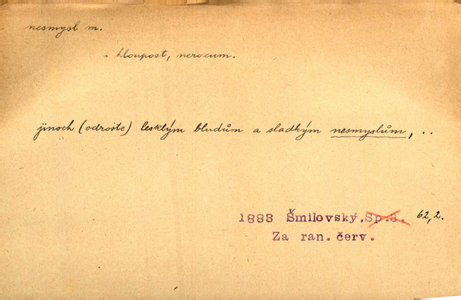 nesmysl m.
hloupost, nerozum.
jinoch (odroste) lesklým bludům a sladkým nesmyslům, ..
1883 Šmilovský, Sp.s. 62,2.
Za ran. červ.